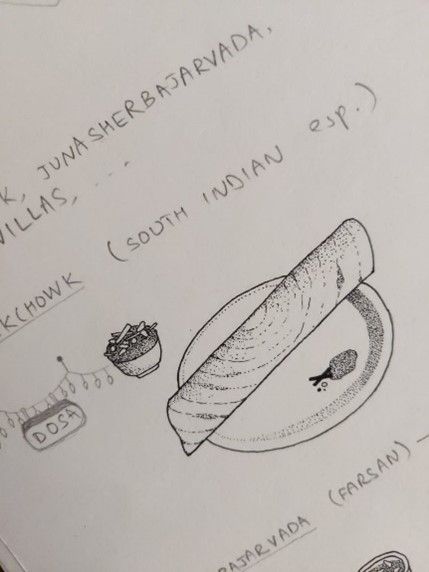 K, JUNASHERBAJARVADA,
VILLAS, ...
KCHOWK (SOUTH INDIAN esp.)
DOSA
BAJARVADA (FARSAN) –